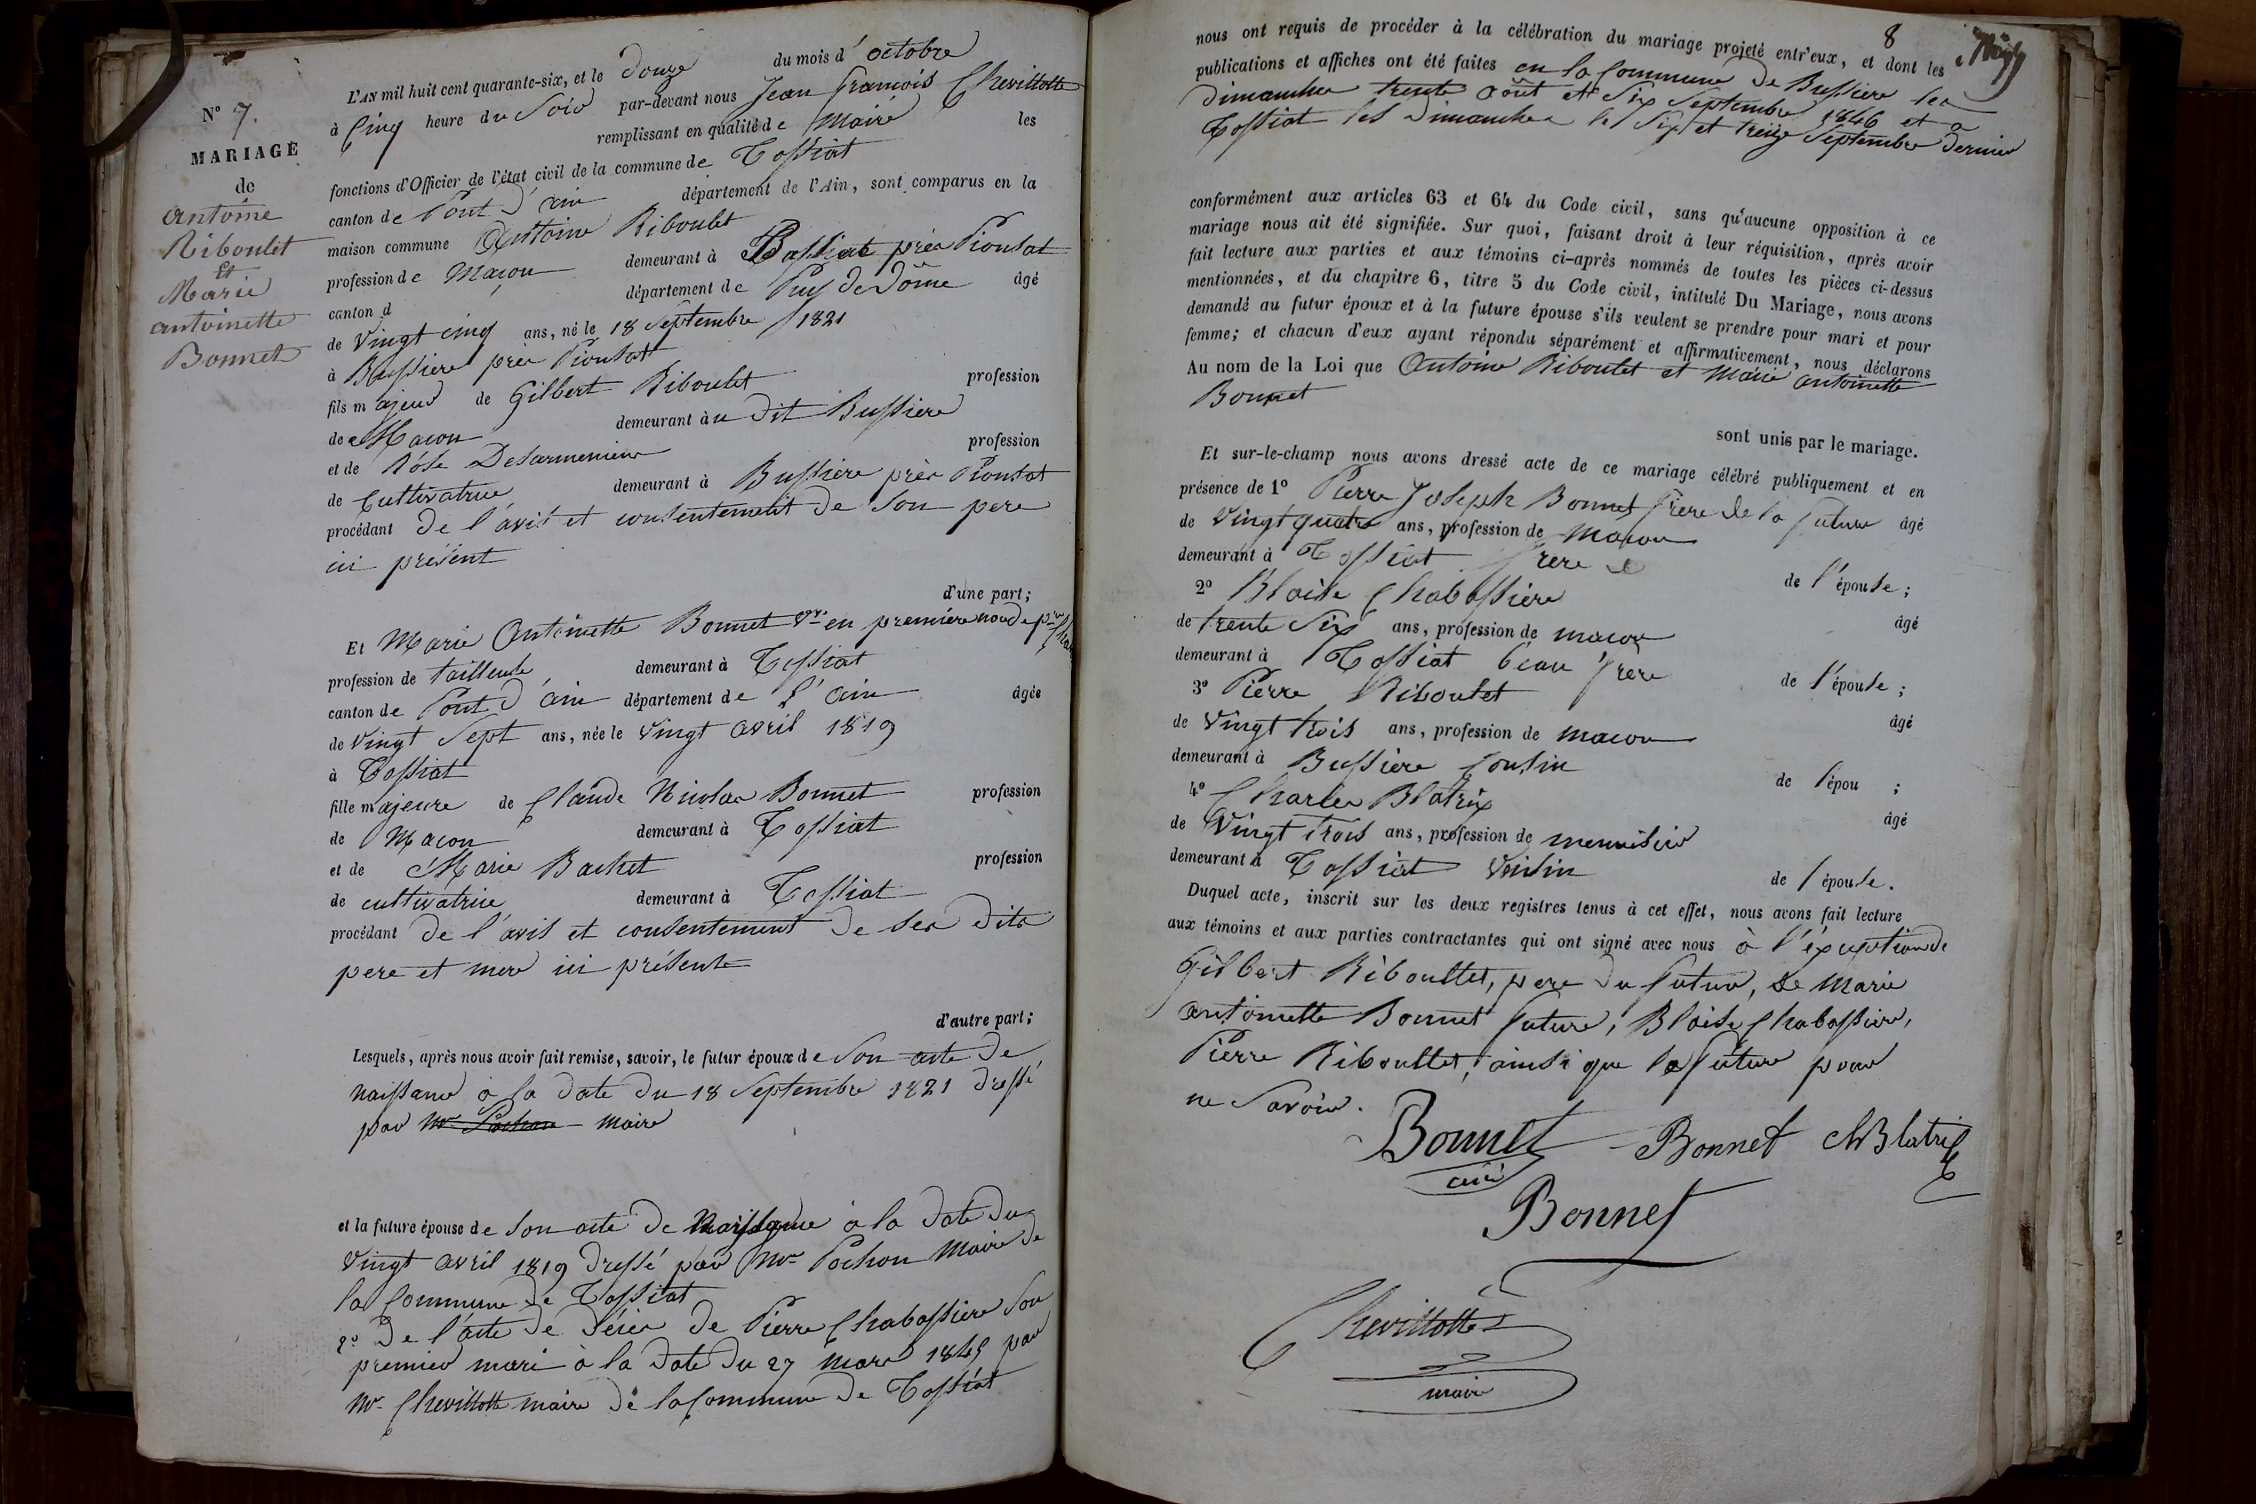 N° 7.
MARIAGE
de
Antoine
Riboulet
et
Marie
antoinette
Bonnet
L'AN mil huit cent quarante-six, et le Douze du mois d'octobre
à Cinq heure du Soir par-devant nous Jean François Chevillotte
remplissant en qualité de Maire les
fonctions d'Officier de l'état civil de la commune de Tossiat
canton de Pont D'ain département de l'Ain, sont comparus en la
maison commune Antoine Riboulet
profession de Maçon demeurant à Bussiere près Pionsat
canton d département de Puy de Dôme âgé
de Vingt cinq ans, né le 18 Septembre 1821
à Bussiere près Pionsat
fils majeur de Gilbert Riboulet profession
de Macon demeurant au dit Bussiere
et de Rose Desarmenien profession
de Cultivatrice demeurant à Bussiere près Pionsat
procédant de l'avis et consentement de son pere
ici présent
d'une part;
Et Marie Antoinette Bonnet Vve en premiére noce de pre
profession de tailleuse demeurant à Tossiat
canton de Pont D'ain département de l'ain âgée
de Vingt Sept ans, née le Vingt avril 1819
à Tossiat
fille majeure de Claude Nicolas Bonnet profession
de Macon demeurant à Tossiat
et de Marie Bachet profession
de cultivatrice demeurant à Tossiat
procédant de l'avis et consentement de ses dits
pere et mere ici présents
d'autre part;
Lesquels, après nous avoir fait remise, savoir, le futur époux de Son acte de
naissance à la date du 18 Septembre 1821 dressé
par Mr Pochon - maire
et la future épouse de son acte de naissance à la date du
Vingt avril 1819 dressé par Mr Pochon Maire de
la Commune de Tossiat
2° De l'acte de décès de Pierre Chabassiere son
premier mari à la date du 27 Mars 1845 par
Mr Chevillotte maire de la Commune de Tossiat
8
nous ont requis de procéder à la célébration du mariage projeté entr'eux, et dont les
publications et affiches ont été faites en la Commune de Bussiere les
Dimanches trente août et Six Septembre 1846 et a
Tossiat les Dimanches le Six et treize Septembre dernier
conformément aux articles 63 et 64 du Code civil, sans qu'aucune opposition à ce
mariage nous ait été signifiée. Sur quoi, faisant droit à leur réquisition, après avoir
fait lecture aux parties et aux témoins ci-après nommés de toutes les pièces ci-dessus
mentionnées, et du chapitre 6, titre 5 du Code civil, intitulé Du Mariage, nous avons
demandé au futur époux et à la future épouse s'ils veulent se prendre pour mari et pour
femme; et chacun d'eux ayant répondu séparément et affirmativement, nous déclarons
Au nom de la Loi que Antoine Riboulet et Marie antoinette
Bonnet
sont unis par le mariage.
Et sur-le-champ nous avons dressé acte de ce mariage célébré publiquement et en
présence de 1° Pierre Joseph Bonnet frere de la future âgé
de Vingt quatre ans, profession de Macon
demeurant à Tossiat frere de l'épouse;
2° Blaise Chabassiere âgé
de trente Six ans, profession de macon
demeurant à Tossiat beau frere de l'épouse;
3° Pierre Riboulet âgé
de Vingt trois ans, profession de macon
demeurant à Bussiere Cousin de l'épou ;
4° Charles Blatrix âgé
de Vingt trois ans, profession de menuisier
demeurant à Tossiat Voisin de l'épouse.
Duquel acte, inscrit sur les deux registres tenus à cet effet, nous avons fait lecture
aux témoins et aux parties contractantes qui ont signé avec nous à l'éxception de
Gilbert Riboullet, pere du futur, de Marie
antoinette Bonnet future, Blaise Chabassiere,
Pierre Riboullet, ainsi que la future pour
ne Savoir.
Bonnet Bonnet Ch Blatrix
curé
Bonnet
Chevillotte
maire